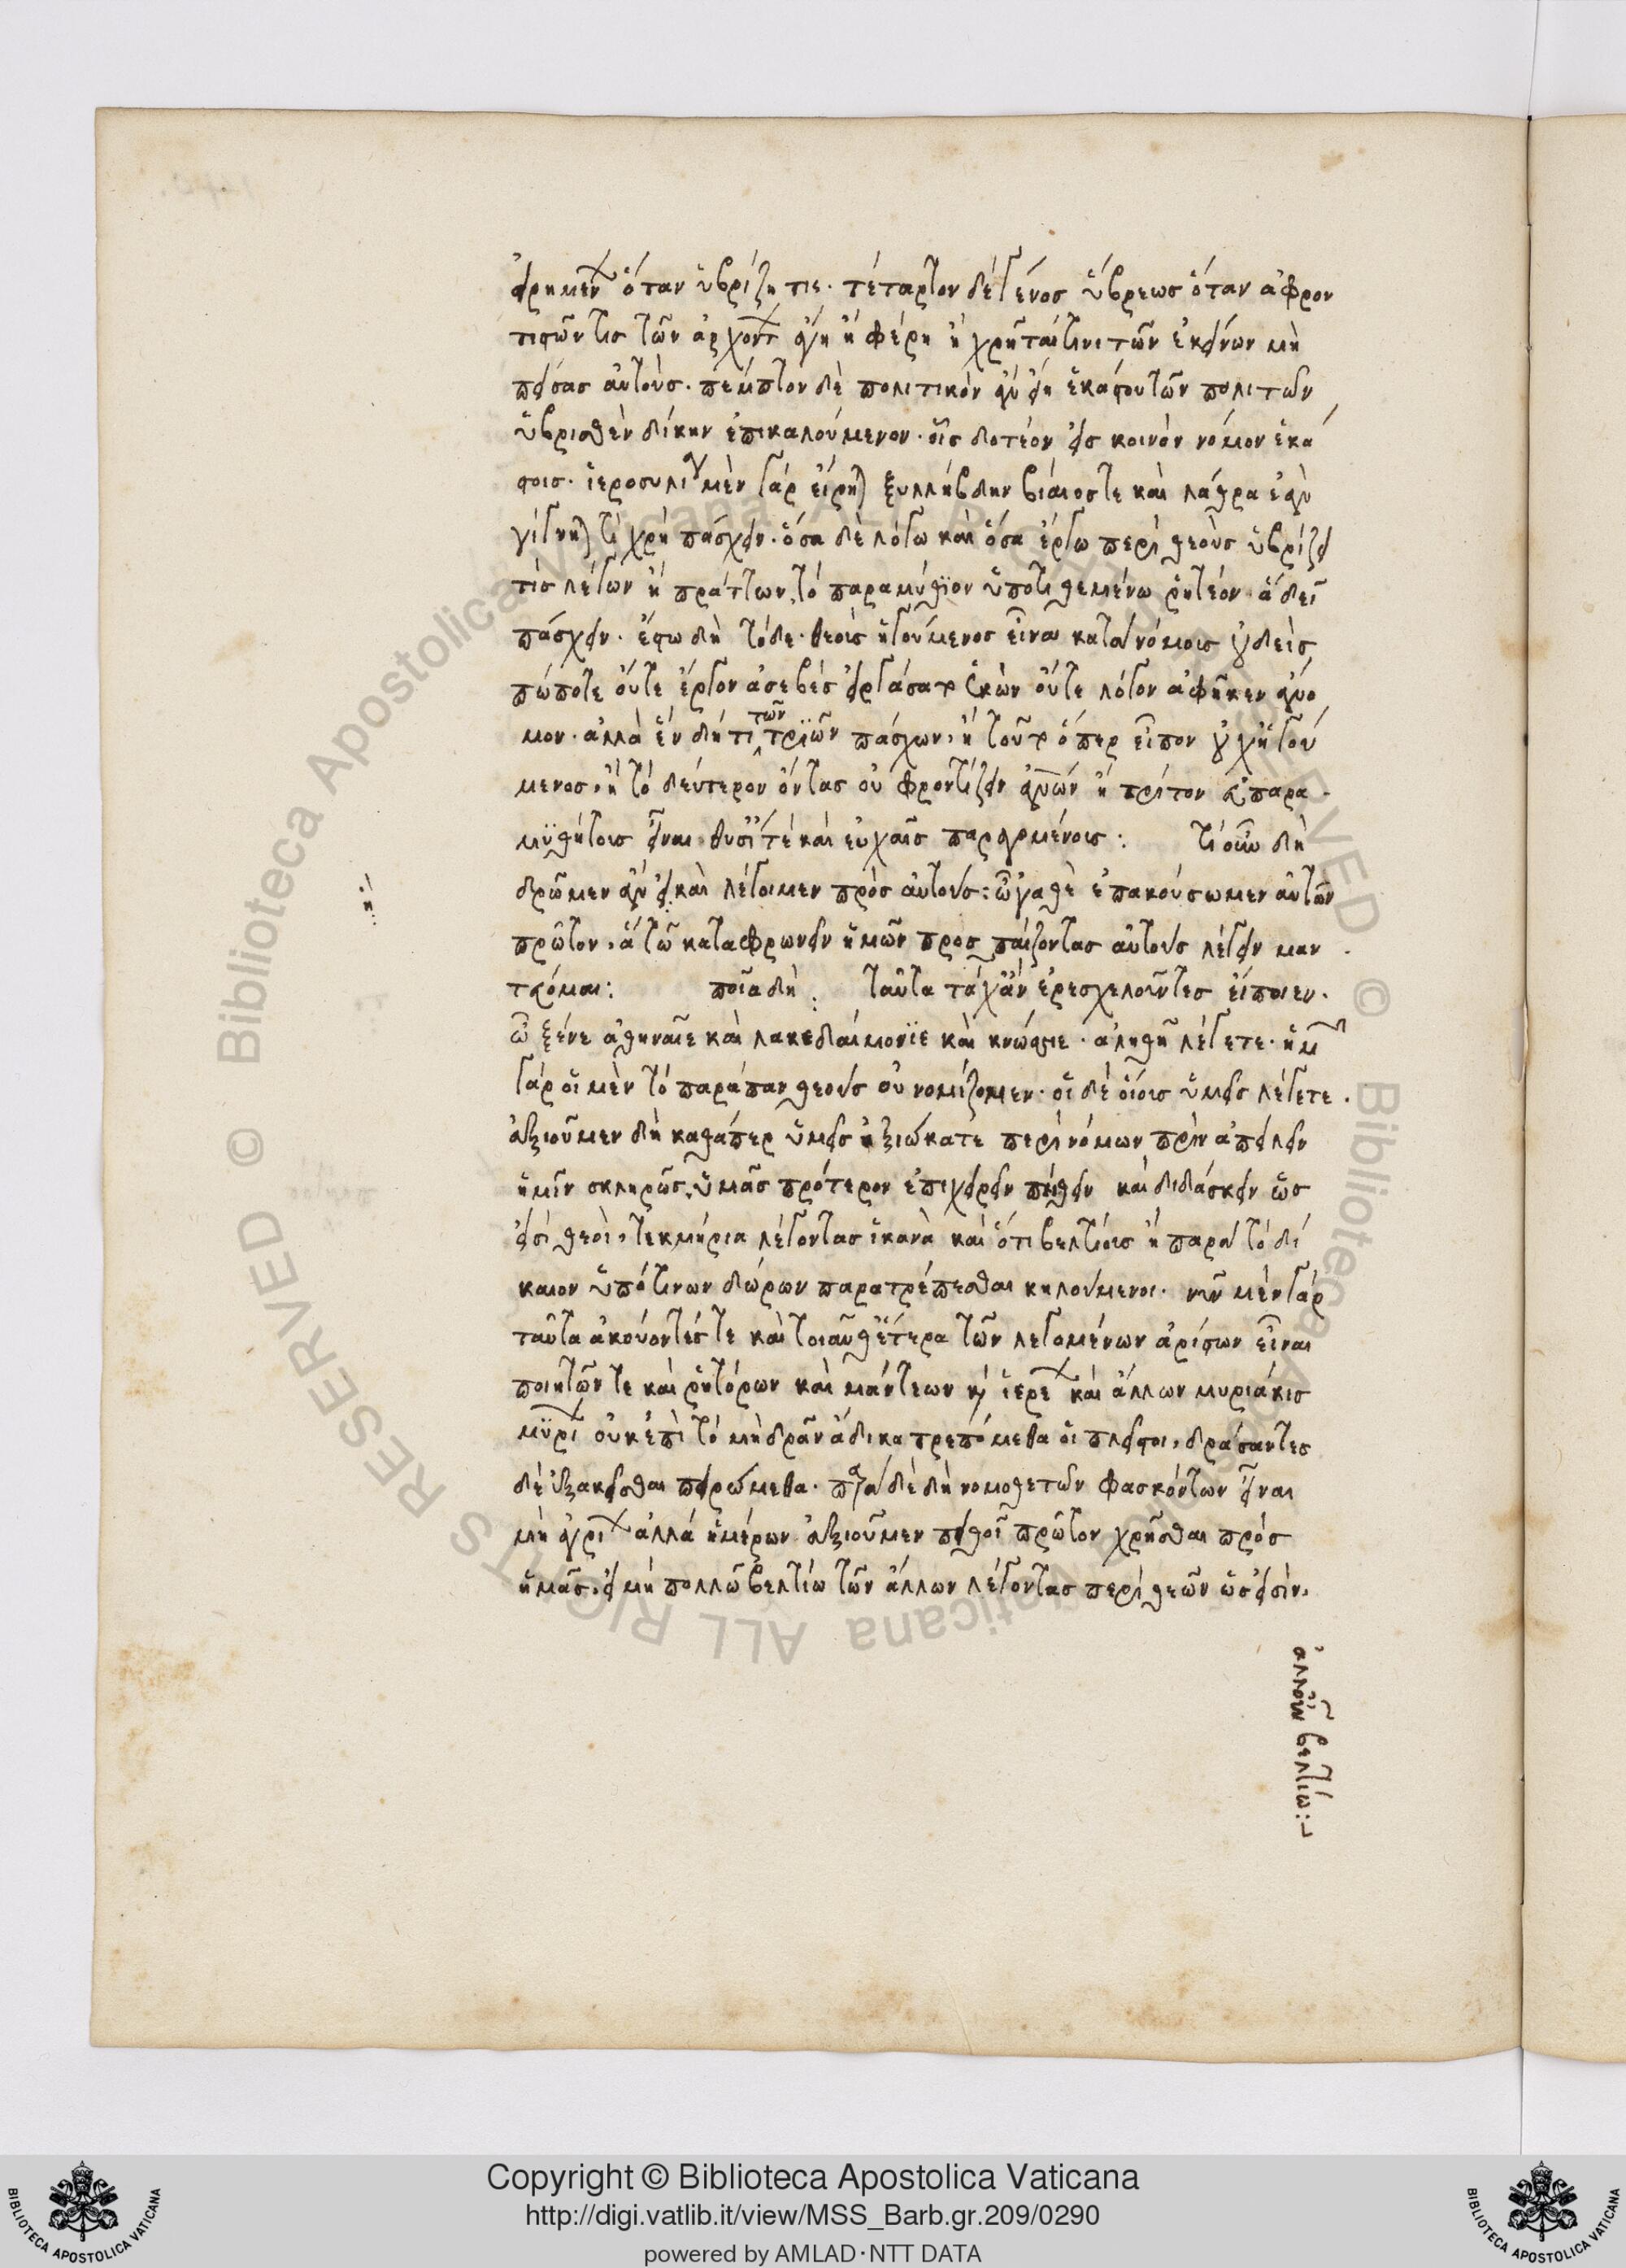 εἰρημένων ὅταν ὑβρίζη τις. τέταρτον δὲ γένος ὕβρεως ὅταν ἀφρον
τιστῶν τις τῶν ἀρχόντων ἄγη ἢ φέρη ἢ χρῆταί τινι τῶν ἐκείνων μὴ
πείσας αὐτούς. πέμπτον δὲ πολιτικὸν ἂν εἴη ἑκάστου τῶν πολιτῶν
ὑβρισθὲν δίκην ἐπικαλούμενον. οἷς δοτέον εἰς κοινὸν νόμον ἑκά
στοις. ἱεροσυλία μὲν γὰρ εἴρηται ξυλλήβδην βίαιός τε καὶ λάθρα ἐὰν
γίγνηται τί χρὴ πάσχειν. ὅσα δὲ λόγω καὶ ὅσα ἔργω περὶ θεοὺς ὑβρίζει
τὶς λέγων ἢ πράττων, τὸ παραμύθιον ὑποτιθεμένω ῥητέον ἃ δεῖ
πάσχειν. ἔστω δὴ τόδε. θεοὺς ἡγούμενος εἶναι κατὰ νόμους οὐδεὶς
πώποτε οὔτε ἔργον ἀσεβὲς εἰργάσατο ἑκὼν οὔτε λόγον ἀφῆκεν ἄνο
μον. ἀλλὰ ἓν δή τι τῶν τριῶν πάσχων, ἢ τοῦτο ὅπερ εἶπον οὐχ ἡγού
μενος, ἢ τὸ δεύτερον ὄντας οὐ φροντίζειν ἀνθρώπων ἢ τρίτον εὐπαρα
μυθήτους εἶναι θυσίαις τε καὶ εὐχαῖς παραγομένους: τί οὖν δὴ
δρῶμεν ἂν ἢ καὶ λέγοιμεν πρὸς αὐτούς: ὦγαθὲ ἐπακούσωμεν αὐτῶν
πρῶτον, ἃ τῶ καταφρονεῖν ἡμῶν προσπαίζοντας αὐτοὺς λέγειν μαν
τεύομαι: ποῖα δή: ταῦτα τάχ' ἂν ἐρεσχελοῦντες εἴποιεν.
ὦ ξένε ἀθηναῖε καὶ λακεδαιμόνιε καὶ κνώσιε. ἀληθῆ λέγετε. ἡμῶν
γὰρ οἱ μὲν τὸ παράπαν θεοὺς οὐ νομίζομεν. οἱ δὲ οἵους ὑμεῖς λέγετε.
ἀξιοῦμεν δὴ καθάπερ ὑμεῖς ἠξιώκατε περὶ νόμων, πρὶν ἀπειλεῖν
ἡμῖν σκληρῶς, ὑμᾶς πρότερον ἐπιχειρεῖν πείθειν καὶ διδάσκειν ὡς
εἰσὶ θεοὶ, τεκμήρια λέγοντας ἱκανὰ καὶ ὅτι βελτίους ἢ παρὰ τὸ δί
καιον ὑπό τινων δώρων παρατρέπεσθαι κηλούμενοι. νῦν μὲν γὰρ
ταῦτα ἀκούοντές τε καὶ τοιαῦθ' ἕτερα τῶν λεγομένων ἀρίστων εἶναι
ποιητῶν τε καὶ ῥητόρων καὶ μάντεων καὶ ἱερέων καὶ ἄλλων μυριάκις
μυρίων οὐκ ἐπὶ τὸ μὴ δρᾶν ἄδικα τρεπόμεθα οἱ πλεῖστοι, δράσαντες
δὲ ἐξακεῖσθαι πειρώμεθα. παρὰ δὲ δὴ νομοθετῶν φασκόντων εἶναι
μὴ ἀγρίων ἀλλὰ ἡμέρων ἀξιοῦμεν πειθοῖ πρῶτον χρῆσθαι πρὸς
ἡμᾶς, εἰ μὴ πολλῶ βελτίω τῶν ἄλλων λέγοντας περὶ θεῶν ὡς εἰσὶν,
ἀλλ' οὖν βελτίω:
Copyright © Biblioteca Apostolica Vaticana
http://digi.vatlib.it/view/MSS_Barb.gr.209/0290
powered by AMLAD·NTT DATA
BIBLIOTECA APOSTOLICA VATICANA
BIBLIOTECA APOSTOLICA VATICANA
© Biblioteca Apostolica Vaticana ALL RIGHTS RESERVED © Biblioteca Apostolica Vaticana ALL RIGHTS RESERVED